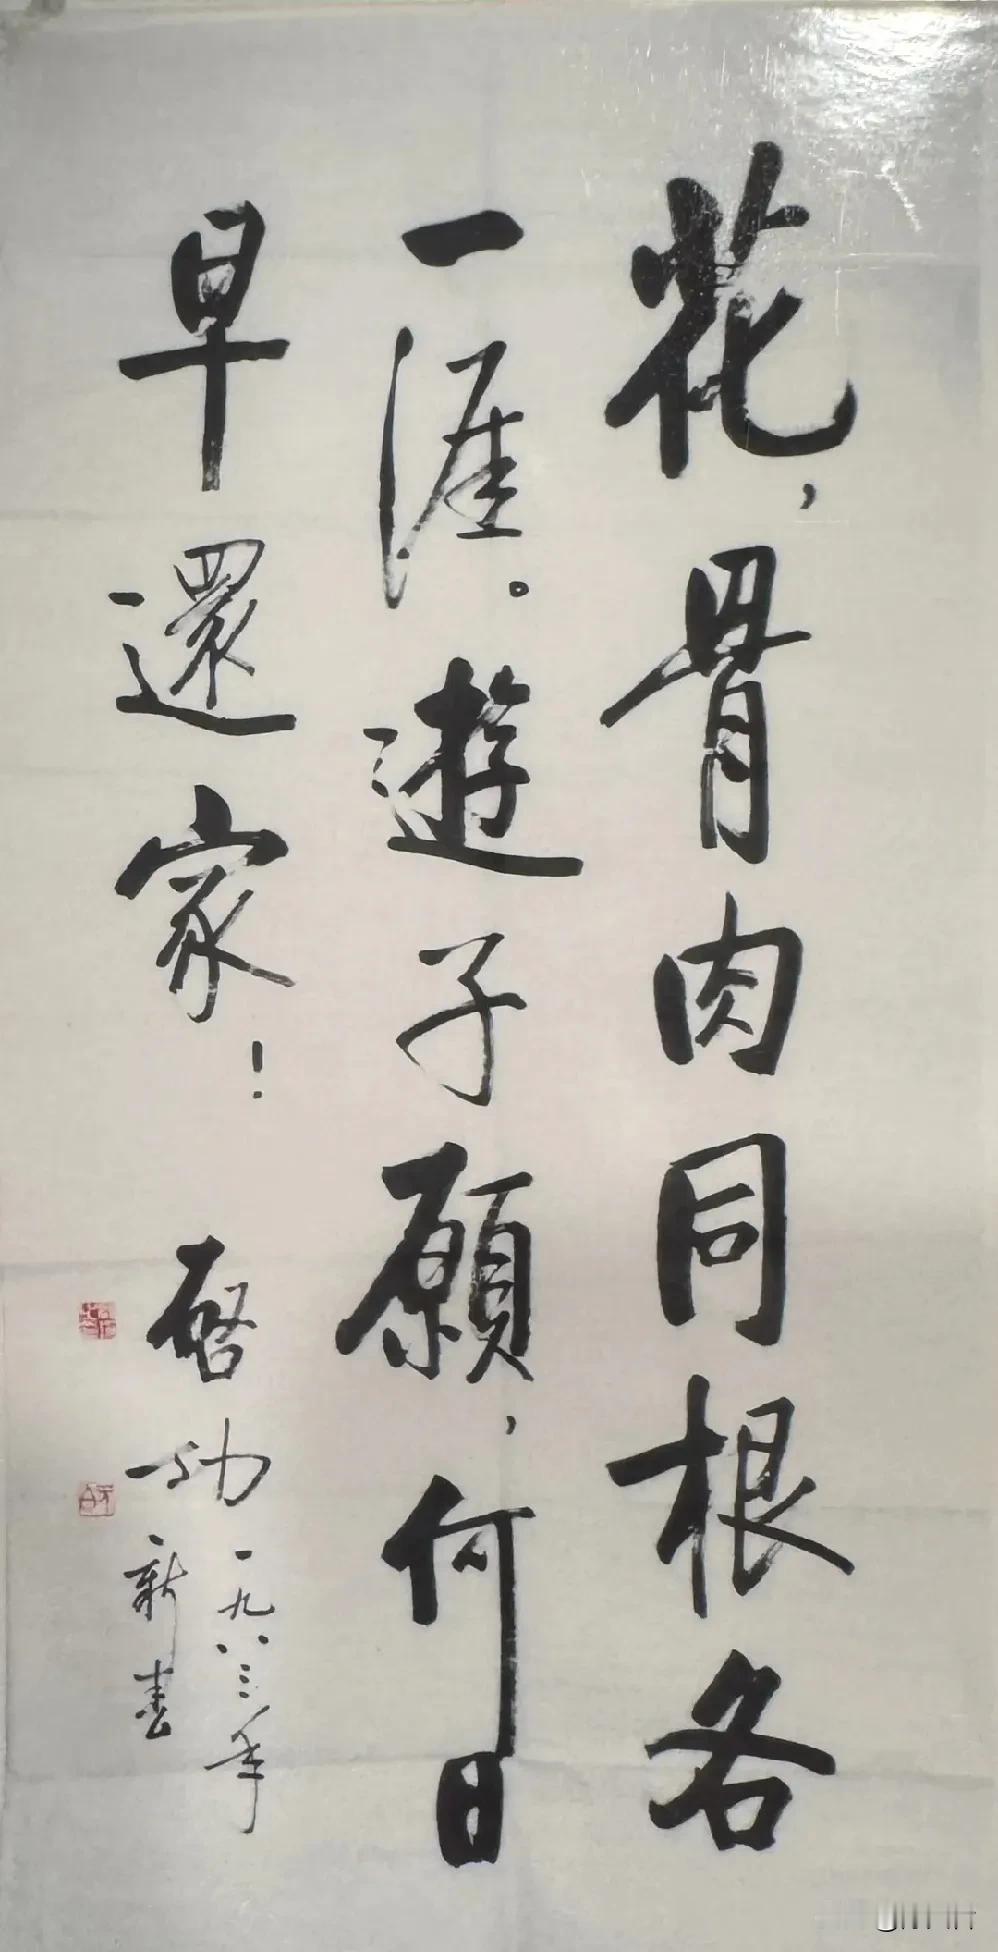 花，骨肉同根各
一涯。遊子願，何日
早還家！
啓功
一九八三年
新春